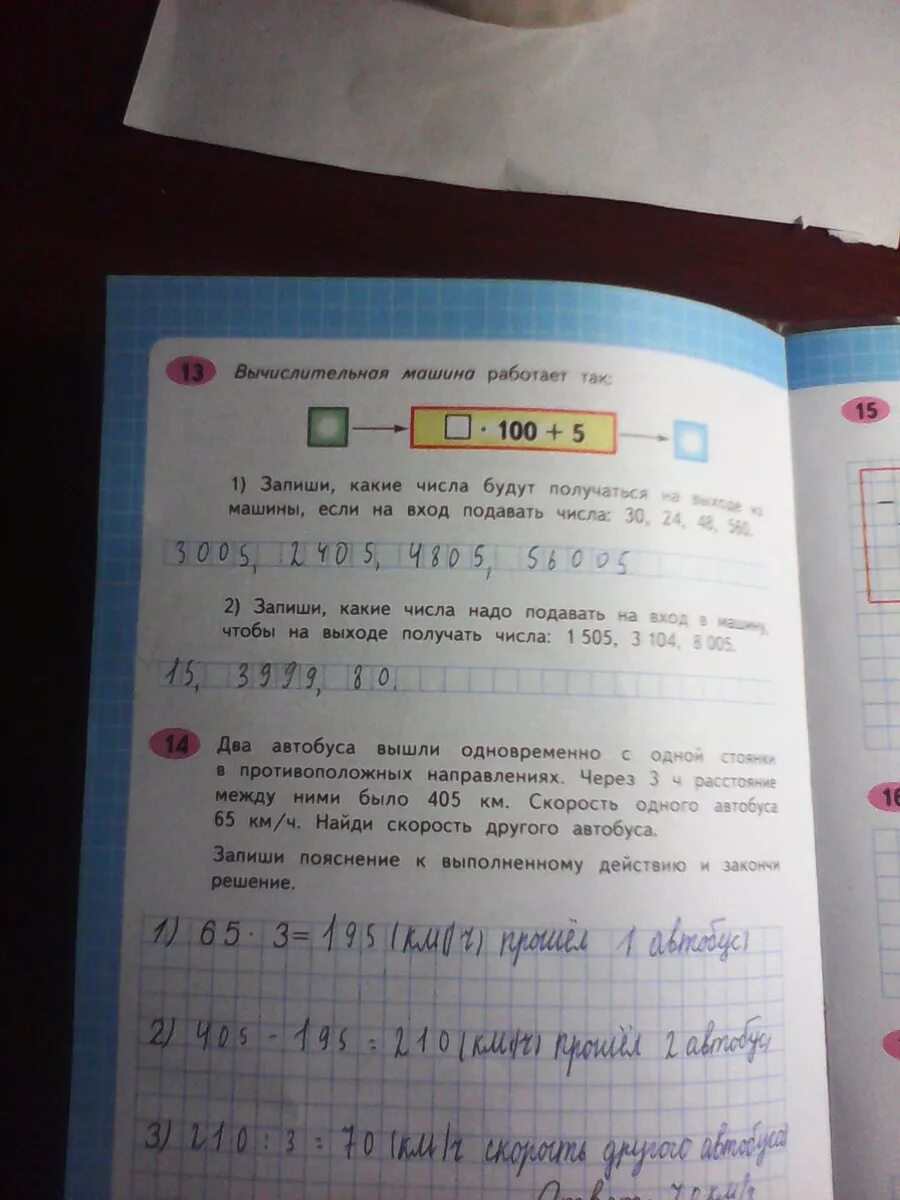 13 Вычислительная машина работает так:
□ · 100 + 5
1) Запиши, какие числа будут получаться на выходе из
машины, если на вход подавать числа: 30, 24, 48, 560.
3005, 2405, 4805, 56005
2) Запиши, какие числа надо подавать на вход в машину,
чтобы на выходе получать числа: 1 505, 3 104, 8 005.
15, 3999, 80.
14 Два автобуса вышли одновременно с одной стоянки
в противоположных направлениях. Через 3 ч расстояние
между ними было 405 км. Скорость одного автобуса
65 км/ч. Найди скорость другого автобуса.
Запиши пояснение к выполненному действию и закончи
решение.
1) 65 · 3 = 195 (км/ч) прошёл 1 автобус)
2) 405 - 195 = 210 (км/ч) прошёл 2 автобус
3) 210 : 3 = 70 (км/ч скорость другого автобуса)
Ответ 70 км/ч
15
16